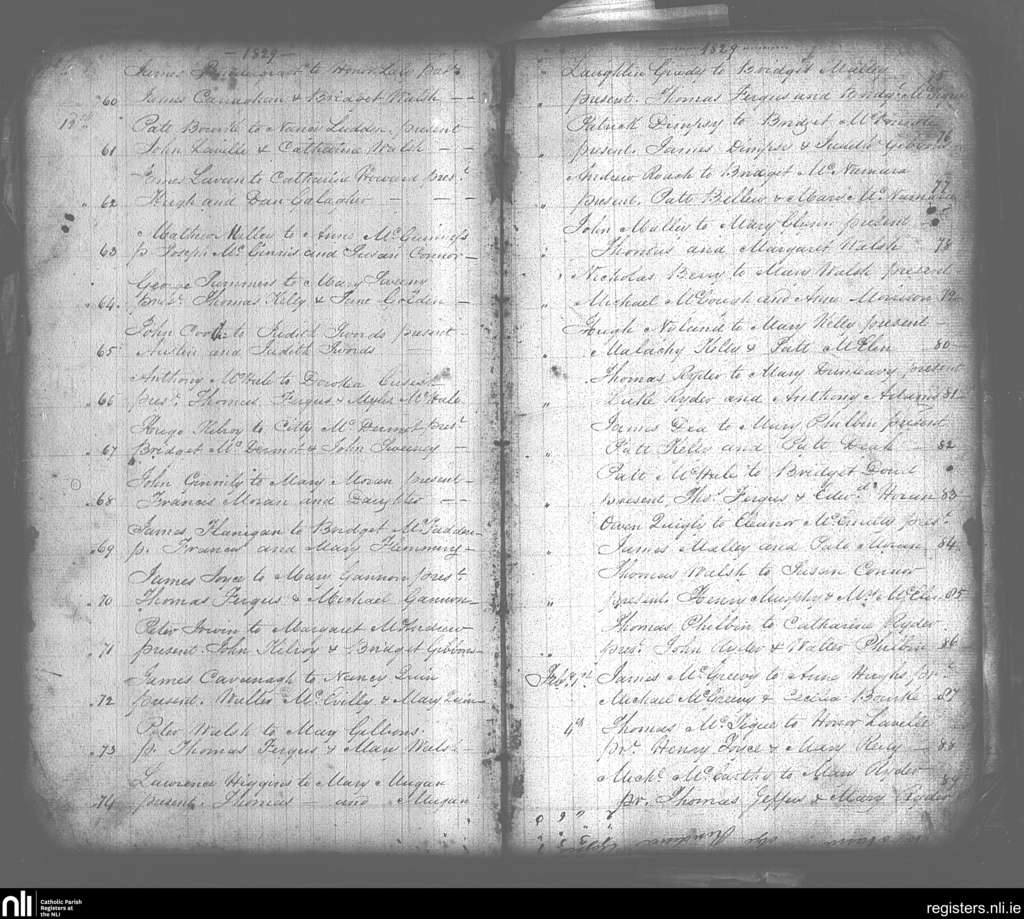 1829
James to Honor
60 James Canaghan & Bridget Walsh
18th Patt Bourke to Nancy Ludden present
61 John Lavelle & Catharine Walsh
James Lavan to Catharine Howard prest
62 Hugh and Dan Galagher
Mathew Kelley to Anne McGuiness
63 p. Joseph McGinnis and Susan Connor
George Summers to Mary Sweeny
64 prest. Thomas Kelly & Jane Golden
John Cook to Judith Swords present
65 Austin and Judith Swords
Anthony McHale to Dorothea Cusick
66 prest. Thomas Fergus & Myles McHale
Kilroy to Citty McDermot prest
67 Bridget McDermot & John Sweeney
John Connily to Mary Moran present
68 Francis Moran and Daughter
James Flanigan to Bridget McFadden
69 p. Francis and Mary Flemming
James Joyce to Mary Gannon prest
70 Thomas Fergus & Michael Gannon
Peter Irwin to Margaret McAndrew
71 present. John Kilroy & Bridget Gibbons
James Cavanagh to Nancy Quin
72 present. Walter McEvilly & Mary Quin
Peter Walsh to Mary Gibbons
73 p. Thomas Fergus & Mary Walsh
Lawrence Higgins to Mary Mugan
74 present. Thomas and Mugan
1829
Laughlin Grady to Bridget Malley
present. Thomas Fergus and Bridgt.
Patrick Dempsy to Bridget
present. James Dempsy & Judith Gibbons 76
Andrew Roach to Bridget McNamara
present. Patt Bellew & Mary McNamara 77
John Malley to Mary Glynn present
Thomas and Margaret Walsh 78
Nicholas Berry to Mary Walsh present
Michael McGough and Anne Morrison 79
Hugh Noland to Mary Kelly present
Malachy Kelly & Patt McElin 80
Thomas Ryder to Mary Dunleavy present
Luke Ryder and Anthony Adams 81
James Dea to Mary Philbin present
Patt Kelly and Patt Deak 82
Patt McHale to Bridget Doud
present Thos. Fergus & Edwd. Horan 83
Owen Quigly to Eleanor prest
James Malley and Patt Moran 84
Thomas Walsh to Susan Connor
present. Henry Murphy & 85
Thomas Philbin to Catharine Ryder
prest. John Ryder & Walter Philbin 86
Feby. 1st James McGreevy to Anne Hughs pr
Michael McGreevy & Cecilia Bourke 87
4th Thomas McTigue to Honor Lavelle
pr. Henry Joyce & Mary Kelly 88
Michl. McCarthy to Mary Ryder
pr. Thomas Jeffers & Mary Ryder 89
nli Catholic Parish
Registers at
the NLI
registers.nli.ie